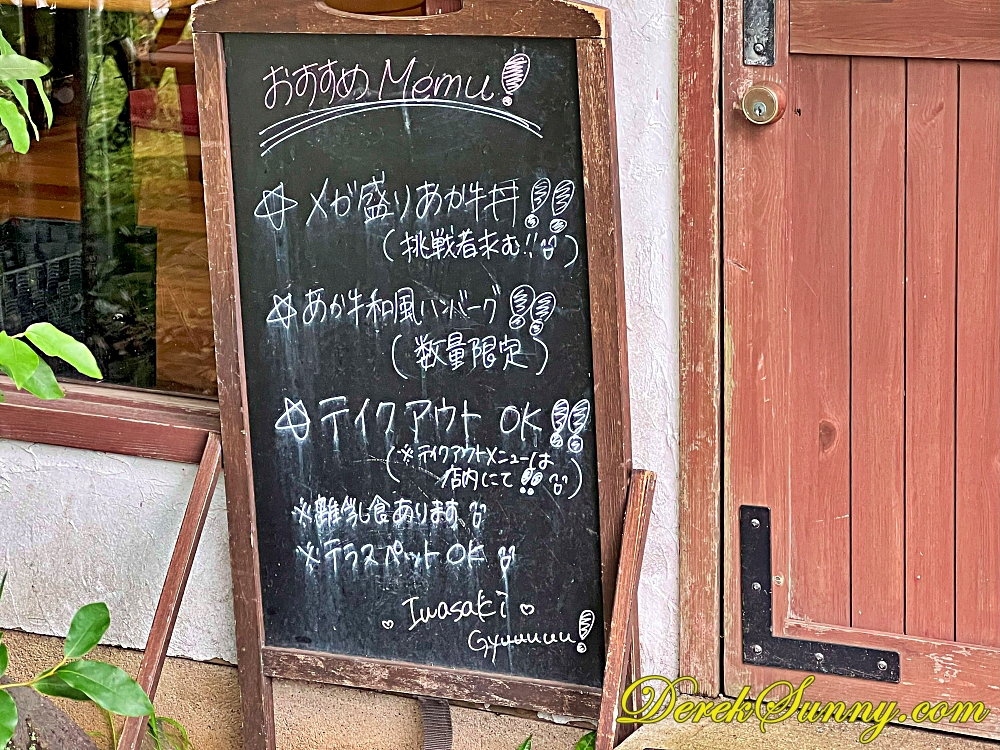 おすすめ Menu!
☆ メガ盛りあか牛丼!!
(挑戦者求む!!)
☆ あか牛和風ハンバーグ!!
(数量限定)
☆ テイクアウト OK!!
(※テイクアウトメニューは
店内にて!!)
※離乳食あります
※テラスペットOK
♡ Iwasaki ♡
Gyuuuuu!
DerekSunny.com